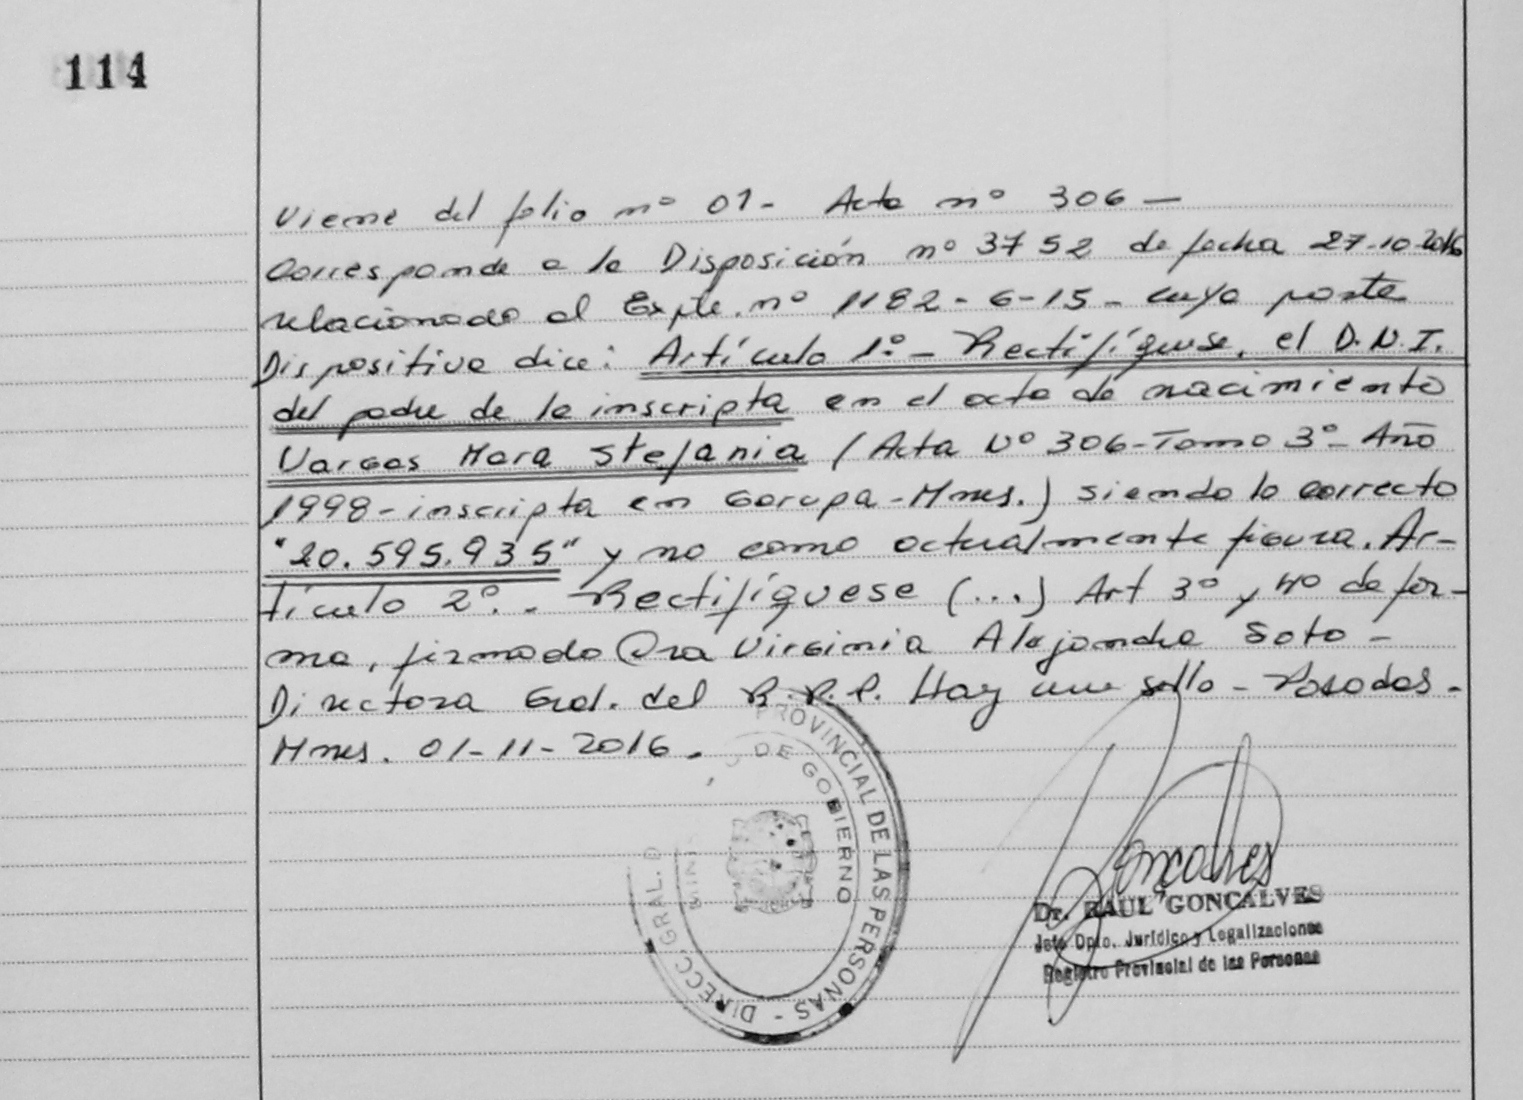 114
Viene del folio nº 01- Acta nº 306 —
Corresponde a la Disposición nº 3752 de fecha 27-10-2016
relacionado al Expte. nº 1182-6-15- cuya parte
Dispositiva dice: Artículo 1º- Rectifíquese, el D.N.I.
del padre de la inscripta en el acta de nacimiento
Vargas Mara Stefania (Acta Nº 306-Tomo 3º- Año
1998-inscripta en Garupa-Mnes.) siendo lo correcto
"20.595.935" y no como actualmente figura. Ar-
tículo 2º.- Rectifíquese (...) Art 3º y 4º de for-
ma, firmado Dra Virginia Alejandra Soto -
Directora Gral. del R.P.P. Hay un sello - Posadas-
Mnes. 01-11-2016.
DIRECC. GRAL. PROVINCIAL DE LAS PERSONAS -
DE GOBIERNO
Goncalves
Dr. RAUL GONCALVES
Jefe Dpto. Jurídico y Legalizaciones
Registro Provincial de las Personas